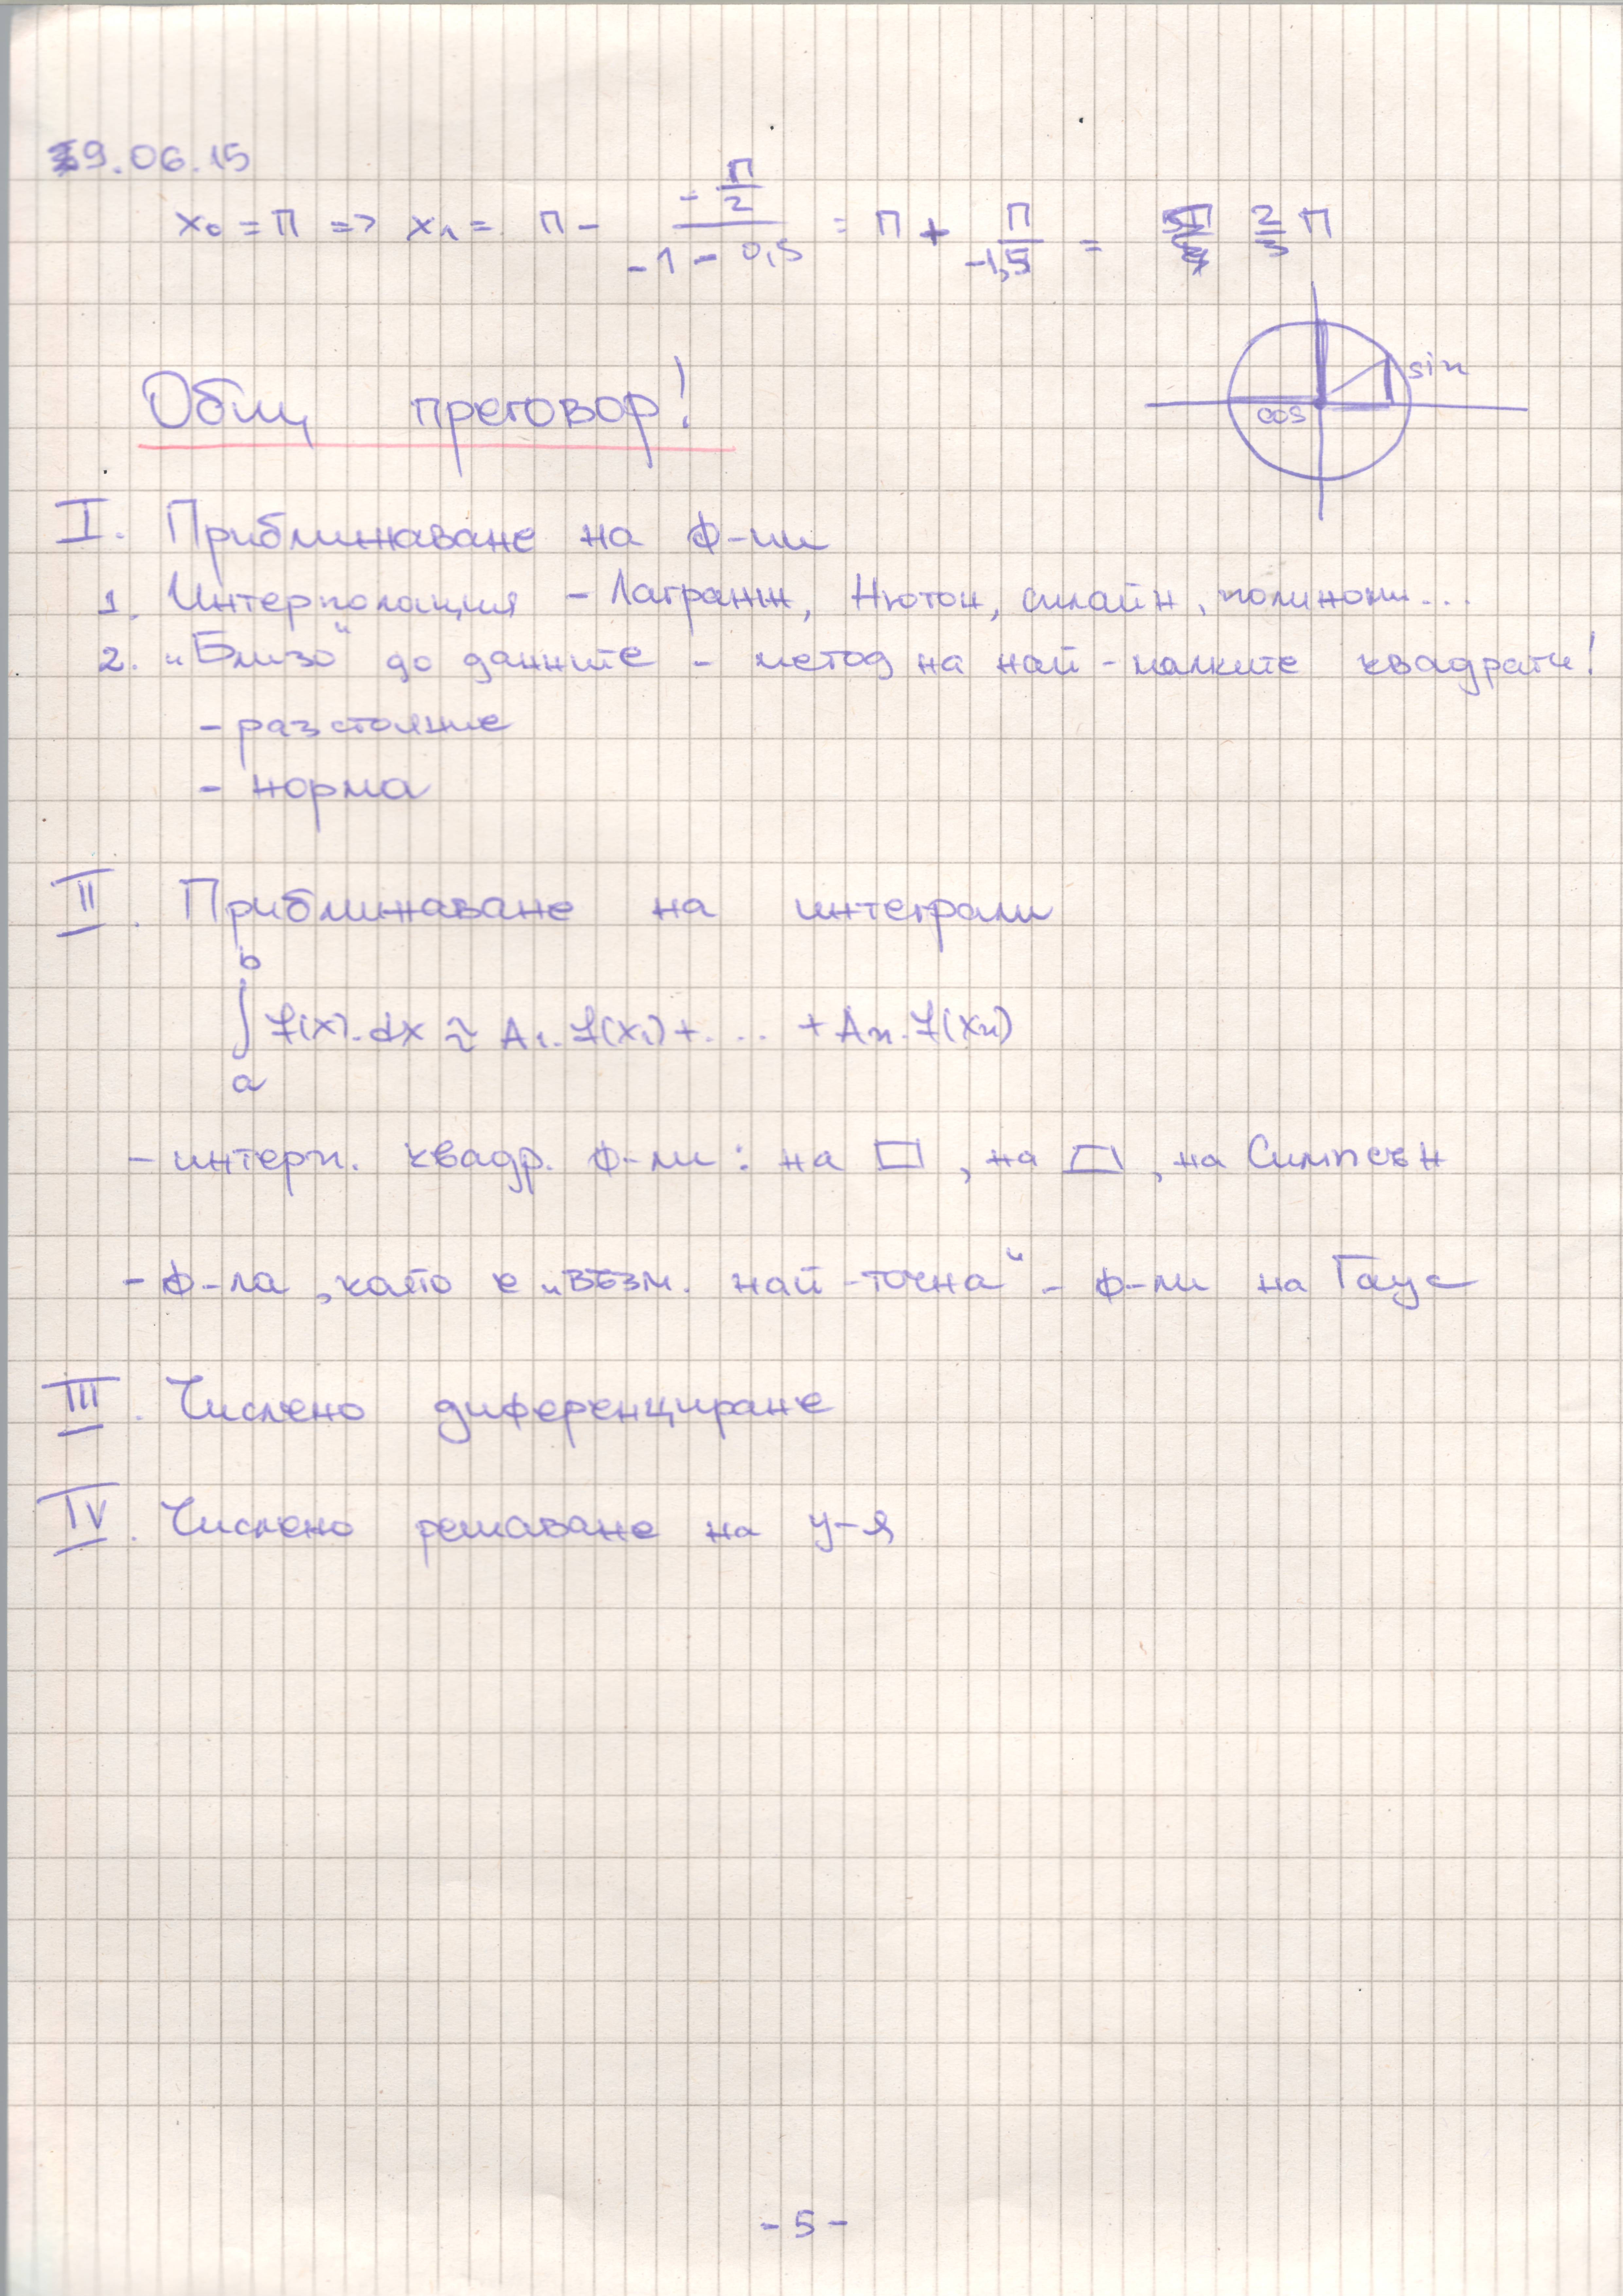 9.06.15
x₀ = π => x₁ = π - (-π/2)/(-1 - 0,5) = π + π/(-1,5) = 2/3 π
sin
cos
Общ преговор!
I. Приближаване на ф-ии
1. Интерполация - Лагранж, Нютон, сплайн, полиноми...
2. „Близо" до данните - метод на най-малките квадрати!
- разстояние
- норма
II. Приближаване на интеграли
∫ₐᵇ f(x).dx ≈ A₁.f(x₁)+.... + Aₙ.f(xₙ)
- интерп. квадр. ф-ли: на □, на ⏢, на Симпсън
- ф-ла, която е „възм. най-точна" - ф-ли на Гаус
III. Числено диференциране
IV. Числено решаване на у-я
- 5 -